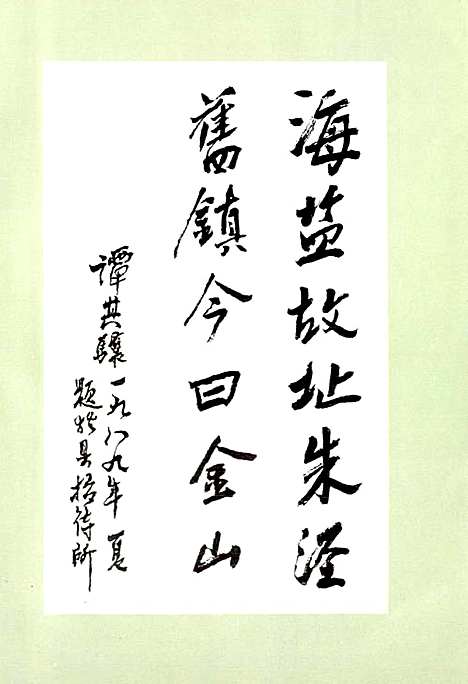 海盐故址朱泾
舊鎮今日金山
譚其驤 一九八九年夏
题於县招待所